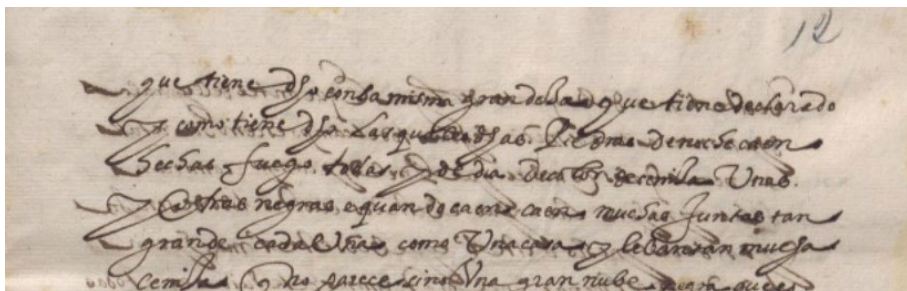 12
que tiene dho con la misma gran que tiene declarado
y como tiene dho las piedras de noche caen
hechas fuego todas, y de dia de color de ceniza Unas.
y otras negras, e quando caen caen muchas juntas tan
grande cada Una como Una casa y lebantan mucha
ceniza que no parece sino Una gran nube negra